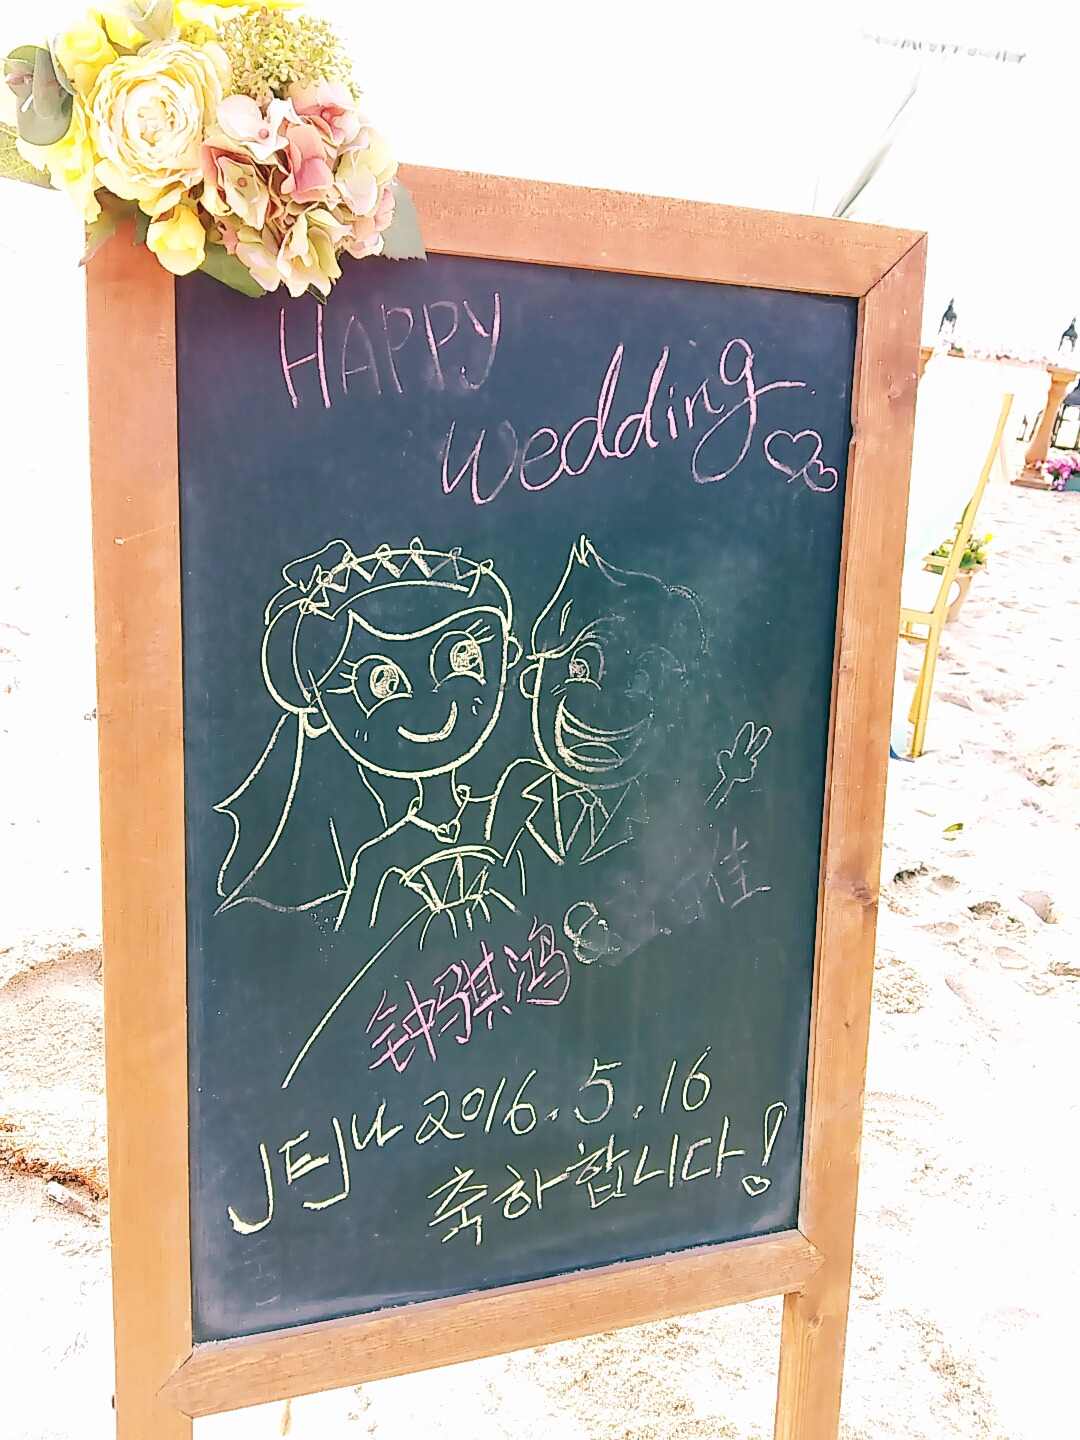 HAPPY
wedding
钟骐鸿 佳
JEJU 2016.5.16
축하합니다!